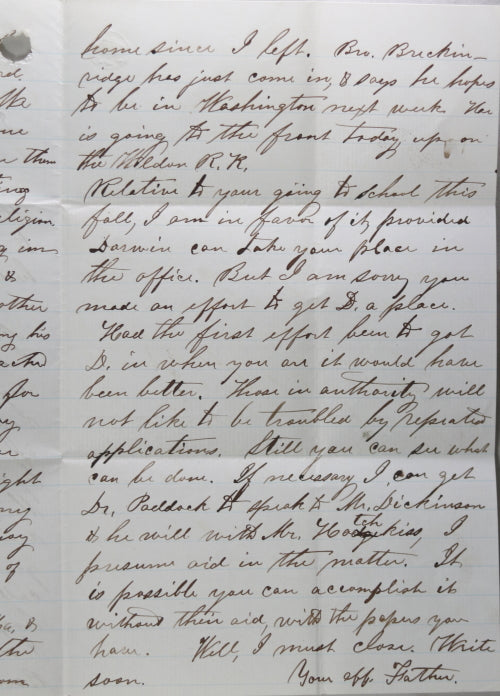 home since I left. Bro. Breckin-
ridge has just come in, & says he hopes
to be in Washington next week. He
is going to the front today up on
the Weldon R. R.
Relative to your going to school this
fall, I am in favor of it, provided
Darwin can take your place in
the office. But I am sorry you
made an effort to get D. a place.
Had the first effort been to get
D. in where you are it would have
been better. Those in authority will
not like to be troubled by repeated
applications. Still you can see what
can be done. If necessary I can get
Dr. Paddock to speak to Mr. Dickinson
& he will with Mr. Hotchkiss, I
presume aid in the matter. It
is possible you can accomplish it
without their aid, with the papers you
have. Well, I must close. Write
soon. Your aff. Father.